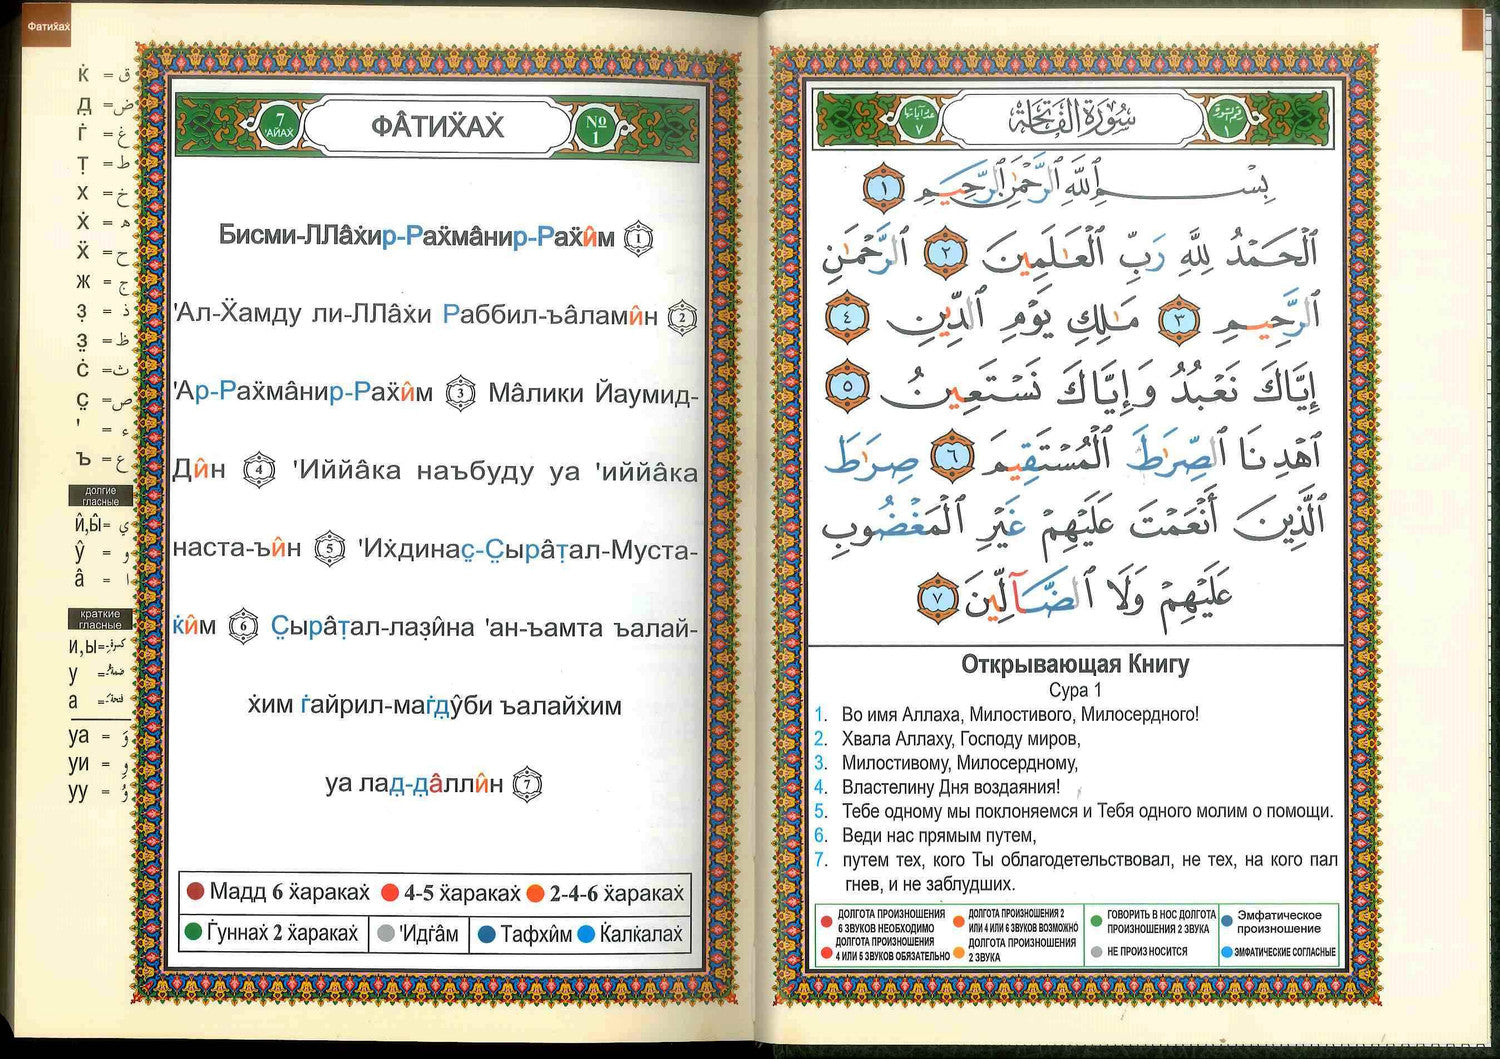 Фатиẍаẋ
қ̇ = ق
д̣ = ض
ѓ = غ
ṭ = ط
х = خ
ẋ = ه
ẍ = ح
ж = ج
ẓ = ذ
з̤ = ظ
ċ = ث
с̤ = ص
' = ء
ъ = ع
долгие
гласные
и̂,ы̂ = ي
у̂ = و
â = ا
краткие
гласные
и,ы = كسرة
у = ضمة
а = فتحة
уа = وَ
уи = وِ
уу = وُ
7
'АЙАẊ
ФÂТИẌАẊ
№
1
Бисми-ЛЛâẋир-Раẍмâнир-Раẍи̂м 1
'Ал-Ẍамду ли-ЛЛâẋи Раббил-ъâлами̂н 2
'Ар-Раẍмâнир-Раẍи̂м 3 Мâлики Йаумид-
Ди̂н 4 'Иййâка наъбуду уа 'иййâка
наста-ъи̂н 5 'Иẋдинас̤-С̤ырâṭал-Муста-
к̇и̂м 6 С̤ырâṭал-лаẓи̂на 'ан-ъамта ъалай-
ẋим г̇айрил-маг̇д̣у̂би ъалайẋим
уа лад̣-д̣âлли̂н 7
Мадд 6 ẍаракаẋ 4-5 ẍаракаẋ 2-4-6 ẍаракаẋ
Г̇уннаẋ 2 ẍаракаẋ 'Идг̇âм Тафхи̂м К̇алк̇алаẋ
عدد آياتها
٧
سُورَةُ الفَاتِحَةِ
رقم السورة
١
بِسْمِ ٱللَّهِ ٱلرَّحْمَٰنِ ٱلرَّحِيمِ ١
ٱلْحَمْدُ لِلَّهِ رَبِّ ٱلْعَٰلَمِينَ ٢ ٱلرَّحْمَٰنِ
ٱلرَّحِيمِ ٣ مَٰلِكِ يَوْمِ ٱلدِّينِ ٤
إِيَّاكَ نَعْبُدُ وَإِيَّاكَ نَسْتَعِينُ ٥
ٱهْدِنَا ٱلصِّرَٰطَ ٱلْمُسْتَقِيمَ ٦ صِرَٰطَ
ٱلَّذِينَ أَنْعَمْتَ عَلَيْهِمْ غَيْرِ ٱلْمَغْضُوبِ
عَلَيْهِمْ وَلَا ٱلضَّآلِّينَ ٧
Открывающая Книгу
Сура 1
1. Во имя Аллаха, Милостивого, Милосердного!
2. Хвала Аллаху, Господу миров,
3. Милостивому, Милосердному,
4. Властелину Дня воздаяния!
5. Тебе одному мы поклоняемся и Тебя одного молим о помощи.
6. Веди нас прямым путем,
7. путем тех, кого Ты облагодетельствовал, не тех, на кого пал
гнев, и не заблудших.
ДОЛГОТА ПРОИЗНОШЕНИЯ
6 ЗВУКОВ НЕОБХОДИМО
ДОЛГОТА ПРОИЗНОШЕНИЯ
4 ИЛИ 5 ЗВУКОВ ОБЯЗАТЕЛЬНО
ДОЛГОТА ПРОИЗНОШЕНИЯ 2
ИЛИ 4 ИЛИ 6 ЗВУКОВ ВОЗМОЖНО
ДОЛГОТА ПРОИЗНОШЕНИЯ
2 ЗВУКА
ГОВОРИТЬ В НОС ДОЛГОТА
ПРОИЗНОШЕНИЯ 2 ЗВУКА
НЕ ПРОИЗНОСИТСЯ
Эмфатическое
произношение
ЭМФАТИЧЕСКИЕ СОГЛАСНЫЕ